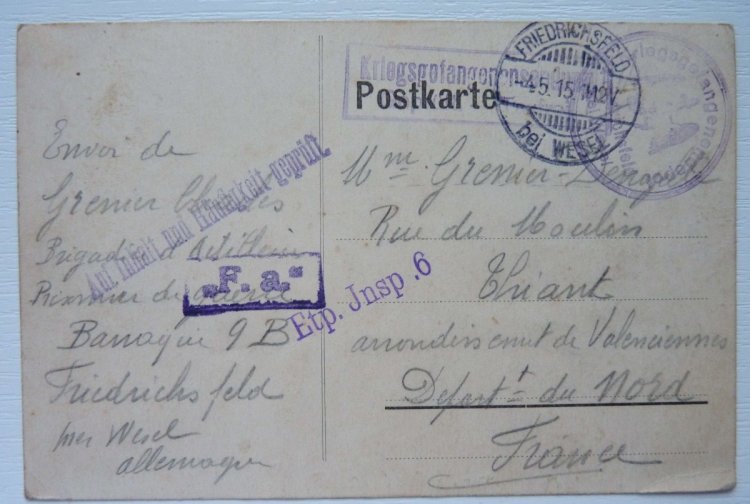 Kriegsgefangenensendung
Postkarte
FRIEDRICHSFELD
-4.5.15. 11-12V.
bei WESEL
Kriegsgefangenen
Envoi de
Grenier Charles
Brigadier d'Artillerie
Prisonnier de guerre
Baraque 9 B
Friedrichsfeld
près Wesel
allemagne
Auf Inhalt und Häufigkeit geprüft.
„F. a."
Etp. Jnsp. 6
Mme Grenier
Rue du Moulin
Thiant
arrondissement de Valenciennes
Départt du Nord
France